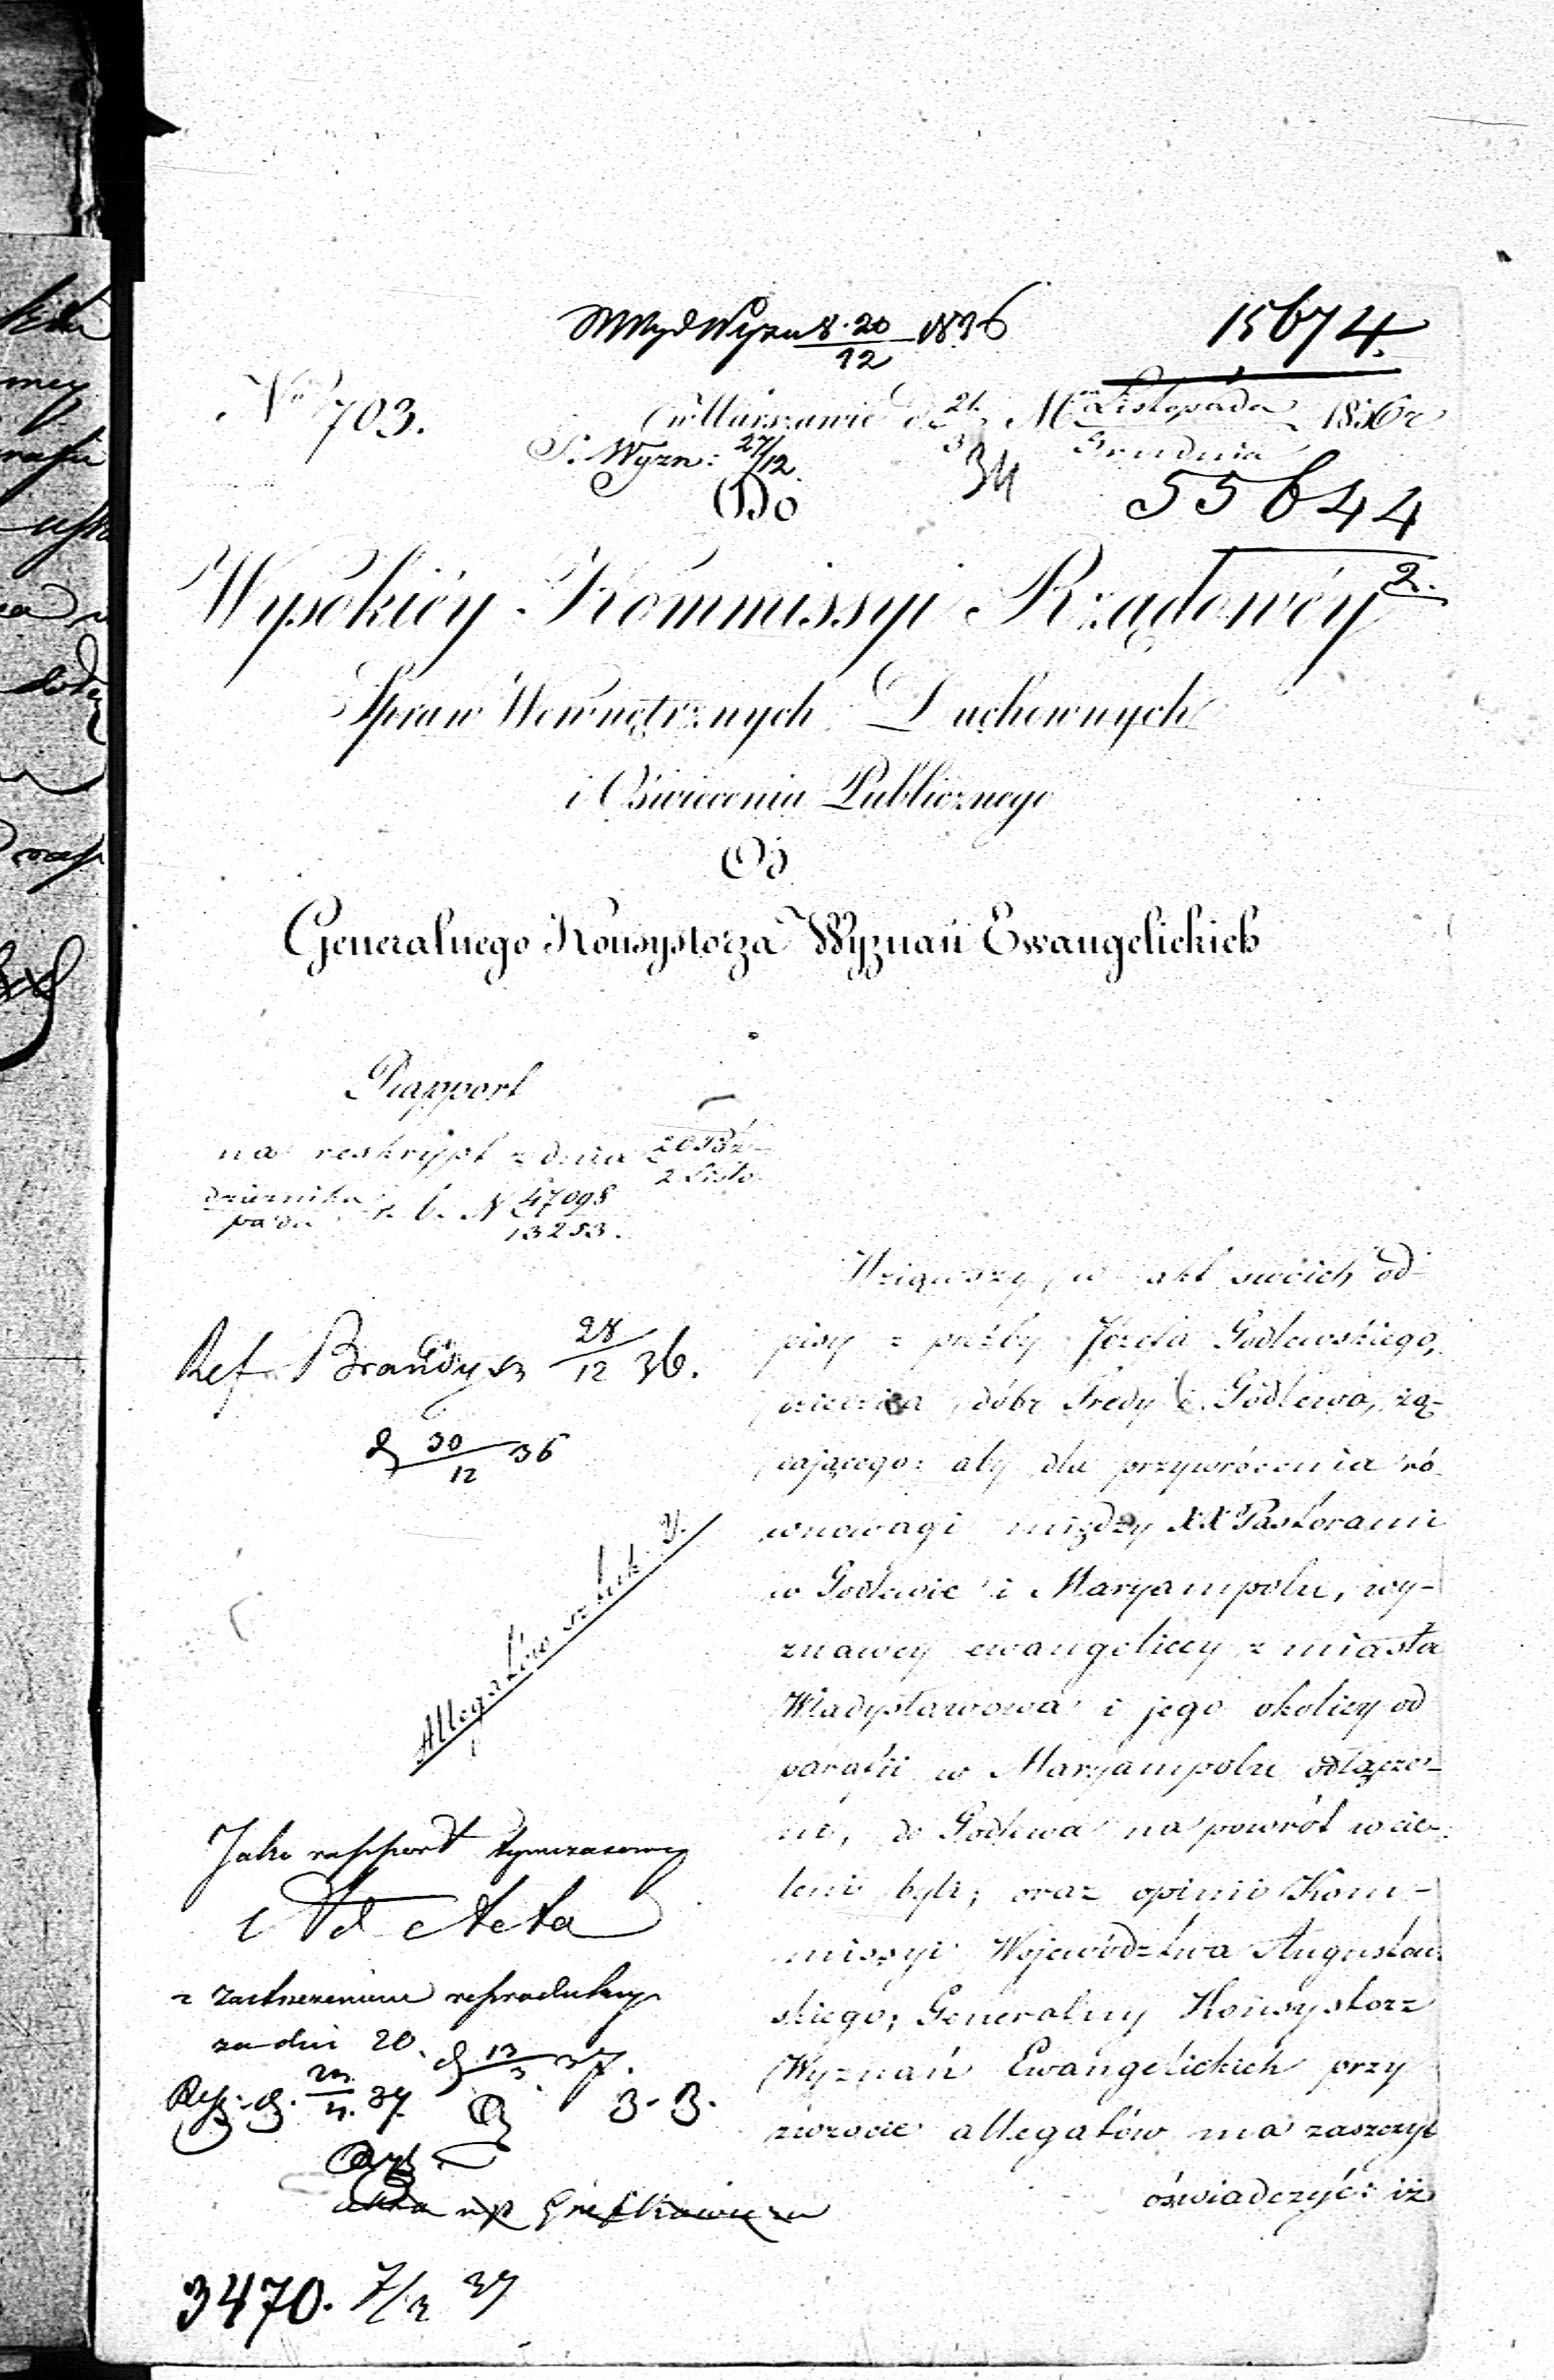 WWydWyzn 8.20/12 1836
15674.
No 703.
w Warszawie d. 21/3 Mca Listopada/Grudnia 1836 r
S. Wyzn: 27/12
34
Do
55644
2.
Wysokiéy Kommissyi Rządowéy
Spraw Wewnętrznych Duchownych
i Oświecenia Publicznego
Od
Generalnego Konsystorza Wyznań Ewangelickich
Rapport
na reskrypt z dnia 20 Paź-/2 Listo-
dziernika/pada r. b. N 47098/13253.
Ref. Brandysz 28/12 36.
30/12 36
Allegatów sztuk
Jako rapport tymczasowy
Ad Acta
z zastrzeżeniem reprodukcyi
za dni 20. 13/3 37.
3470. 7/3 37
Wziąwszy w akt swoich od-
pisy z prózby Józefa Godlewskiego,
dziedzica dóbr Fredy i Godlewa, żą-
dającego: aby dla przywrócenia ró-
wnowagi między XX Pastorami
w Godlewie i Maryampolu, wy-
znawcy ewangeliccy z miasta
Władysławowa i jego okolicy od
parafii w Maryampolu odłącze-
ni, do Godlewa na powrót wcie-
leni byli; oraz opinii Kom-
missyi Województwa Augustow-
skiego; Generalny Konsystorz
Wyznań Ewangelickich przy
zwrocie allegatów ma zaszczyt
oświadczyć: iż